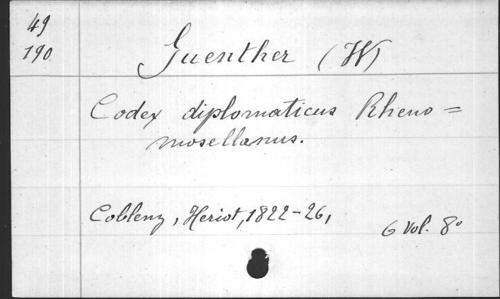 49
190
Guenther (W)
Codex diplomaticus Rheno=
mosellanus.
Coblenz, Heriot, 1822-26,
6 Vol. 8°